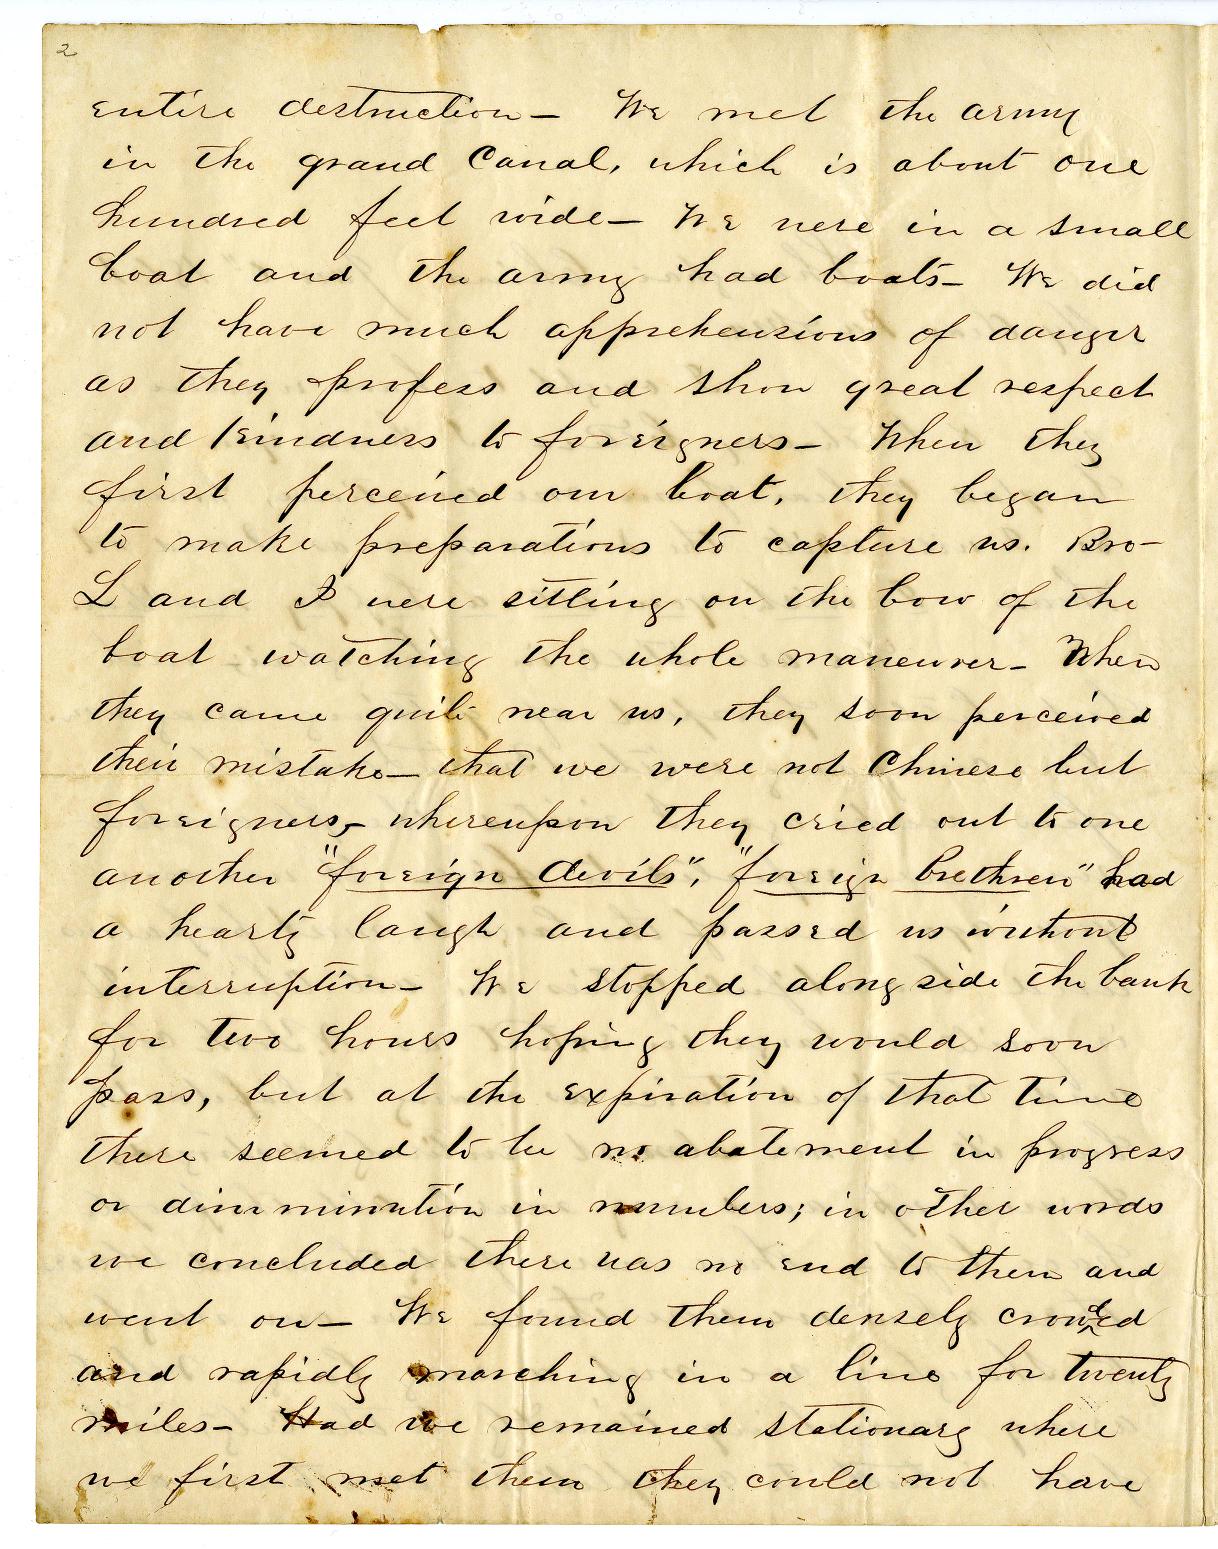 2
entire destruction – We met the army
in the grand Canal, which is about one
hundred feet wide – We were in a small
boat and the army had boats – We did
not have much apprehensions of danger
as they profess and show great respect
and kindness to foreigners – When they
first perceived our boat, they began
to make preparations to capture us. Bro –
L and I were sitting on the bow of the
boat watching the whole maneuver – When
they came quite near us, they soon perceived
their mistake – that we were not Chinese but
foreigners, – whereupon they cried out to one
another "foreign devils", "foreign brethren" had
a hearty laugh and passed us without
interruption – We stopped along side the bank
for two hours hoping they would soon
pass, but at the expiration of that time
there seemed to be no abatement in progress
or dimminution in numbers; in other words
we concluded there was no end to them and
went on – We found them densely crowded
and rapidly marching in a line for twenty
miles – Had we remained stationary where
we first met them they could not have